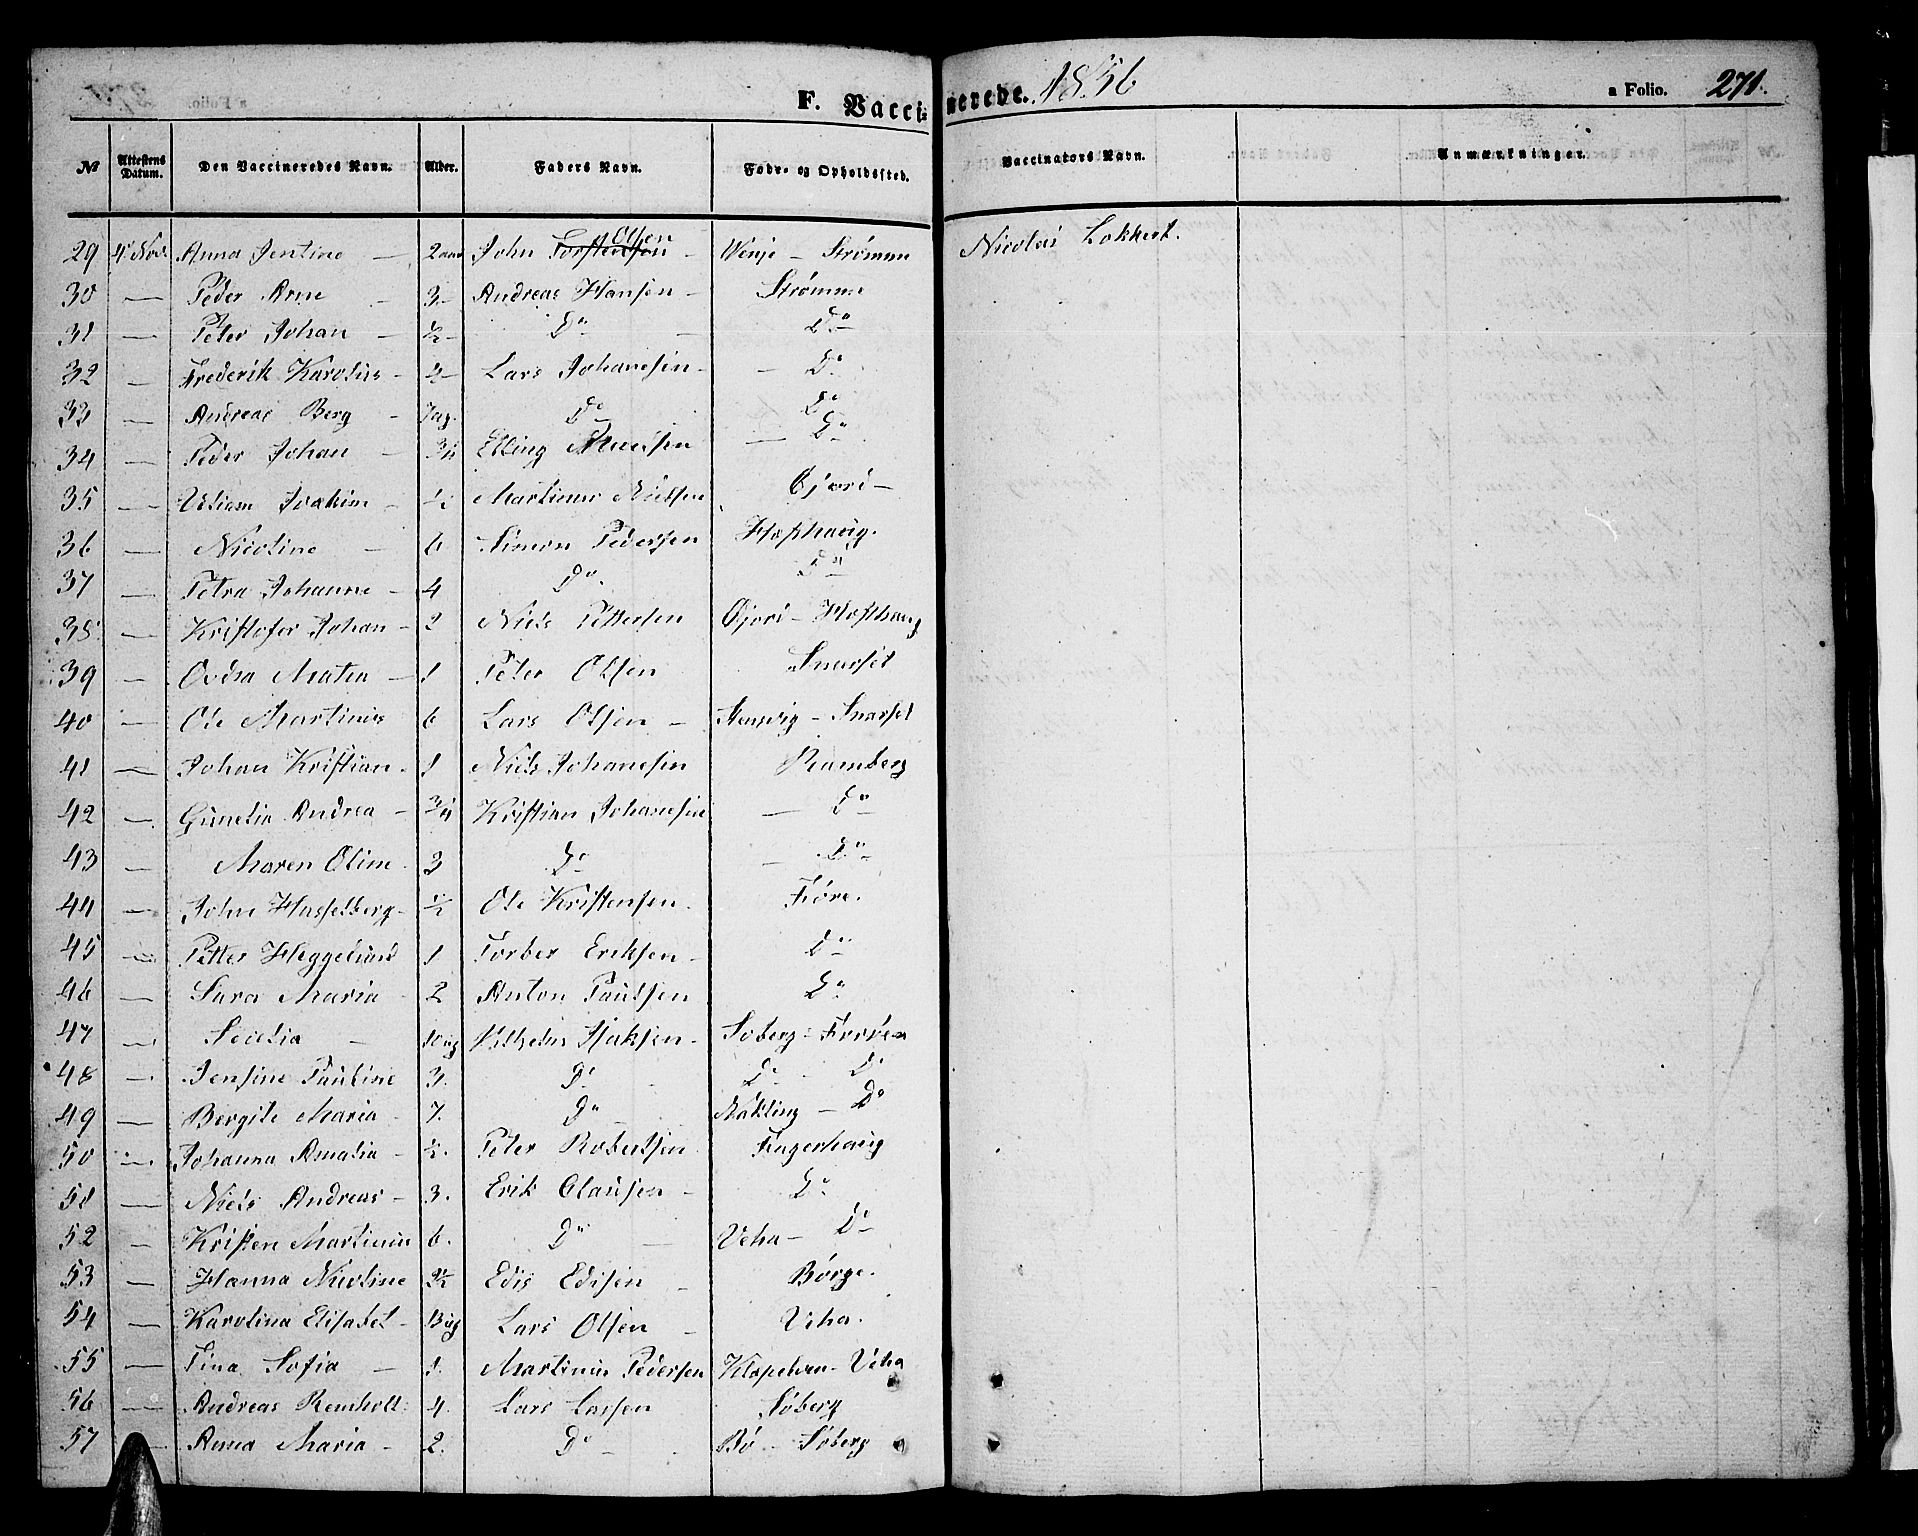 F. Vaccinerede. 1856
a Folio. 271.
№ Attestens Datum. Den Vaccineredes Navn. Alder. Faders Navn. Føde- og Opholdssted. Vaccinators Navn. Anmærkninger.
29 4 Nov. Anna Jentine — 2 aar John Torstensen Olsen — Wenje — Strømme Nicolai Lokkert.
30 — Peder Arne — 3 — Andreas Hansen — Strømme
31 — Peter Johan — ½ — Do — Do
32 — Frederik Karolius — ½ — Lars Johanesen — — Do
33 — Andreas Berg — Do Do
34 — Peder Johan — 3/4 Elling — Do
35 — Joakim — ½ Martinus Nielsen Gjeri —
36 — Nicoline — 6 Simon Pedersen Hofshaug.
37 — Petra Johanne — 4 Do Do
38 — Kristofer Johan — 2 Niels Pettersen Gjeri — Hofshaug
39 — Ovdia Matea — 1 Peter Olsen Snarset
40 — Ole Martinus 6 Lars Olsen — Stensvig — Snarset
41 — Johan Kristian. 1 Niels Johanesen Ramberg
42 — Gunelia Andrea — 3/4 Kristian Johanesen — Do
43 — Maren Oline. 3 Do — Do
44 — John Hasselberg — ½ Ole Kristensen. Føre.
45 — Petter Heggelund 1 Torber Eriksen — Do
46 — Sara Maria 2 Anton Paulsen Do
47 — Secelia — 10 ug Vilhelm Isaksen — Søberg —
48 — Jensine Pauline 3. Do Do Do
49 — Bergite Maria — 7. Do — Nykling — Do
50 — Johanna Amalia — ½. Peter Robertsen Fagerhaug
51 — Niels Andreas — 3. Erik Clausen — Do
52 — Kristen Martinus 6. Do — Veha — Do
53 — Hanna Nicoline 3½ Edis Edisen — Børge.
54 — Karolina Elisabet — 13 ug Lars Olsen — Veha.
55 — Tina Sofia — 1. Martinus Pedersen — Veha
56 — Andreas Reinholt 4. Lars Larsen Søberg
57 Anna Maria — 2. Do — Bø — Søberg